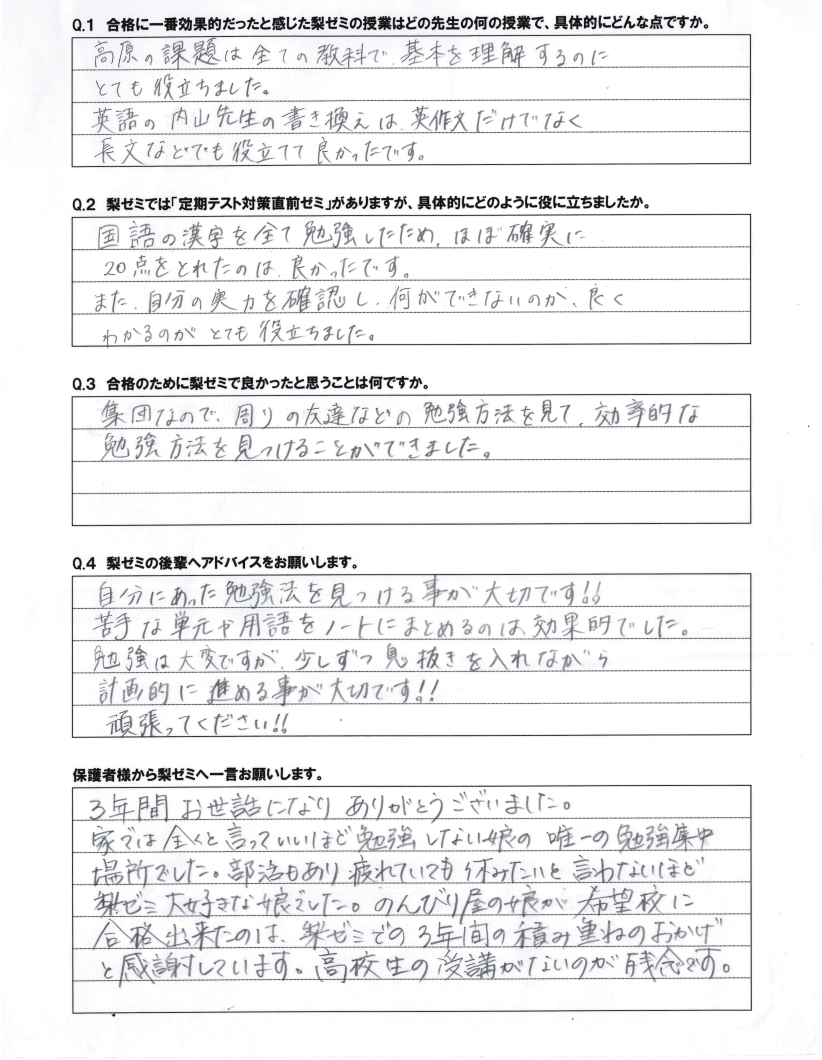 Q.1 合格に一番効果的だったと感じた梨ゼミの授業はどの先生の何の授業で、具体的にどんな点ですか。
高原の課題は全ての教科で、基本を理解するのに
とても役立ちました。
英語の内山先生の書き換えは、英作文だけでなく
長文などでも役立てて良かったです。
Q.2 梨ゼミでは「定期テスト対策直前ゼミ」がありますが、具体的にどのように役に立ちましたか。
国語の漢字を全て勉強したため、ほぼ確実に
20点をとれたのは、良かったです。
また、自分の実力を確認し、何ができないのか、良く
わかるのがとても役立ちました。
Q.3 合格のために梨ゼミで良かったと思うことは何ですか。
集団なので、周りの友達などの勉強方法を見て、効率的な
勉強方法を見つけることができました。
Q.4 梨ゼミの後輩へアドバイスをお願いします。
自分にあった勉強法を見つける事が大切です!!
苦手な単元や用語をノートにまとめるのは効果的でした。
勉強は大変ですが、少しずつ息抜きを入れながら
計画的に進める事が大切です!!
頑張ってください!!
保護者様から梨ゼミへ一言お願いします。
3年間お世話になりありがとうございました。
家では全くと言っていいほど勉強しない娘の唯一の勉強集中
場所でした。部活もあり疲れていても休みたいと言わないほど
梨ゼミ大好きな娘でした。のんびり屋の娘が希望校に
合格出来たのは、梨ゼミでの3年間の積み重ねのおかげ
と感謝しています。高校生の受講がないのが残念です。